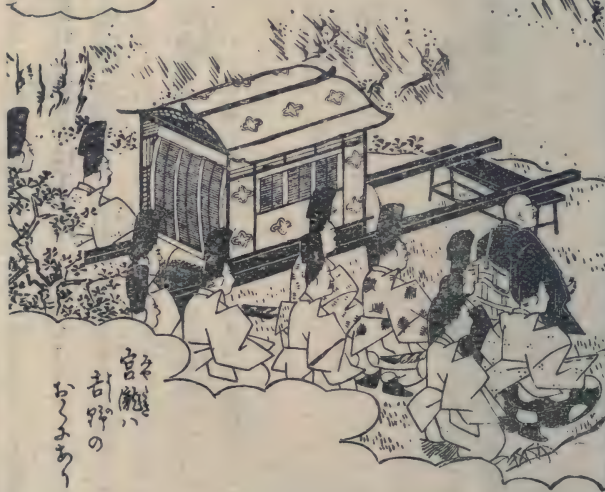 宮瀧ハ
吉野の
おくにあり